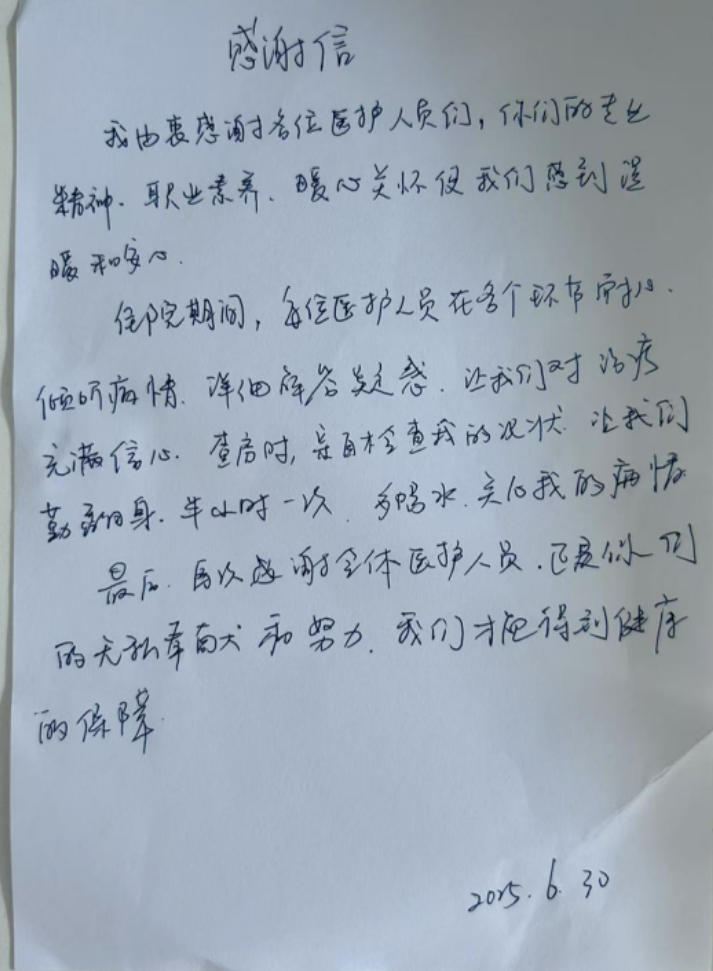 感谢信
我由衷感谢各位医护人员们，你们的专业
精神、职业素养、暖心关怀使我们感到温
暖和安心.
住院期间，每位医护人员在各个环节耐心.
倾听病情、详细解答疑惑、让我们对治疗
充满信心. 查房时, 检查我的况状 让我们
勤翻身、半小时一次、多喝水、关心我的病情
最后、再次感谢全体医护人员、正是你们
的无私奉献和努力、我们才能得到健康
的保障.
2025.6.30